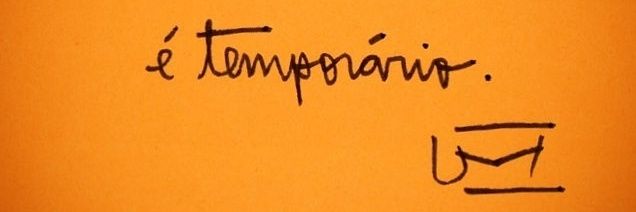 é temporário.